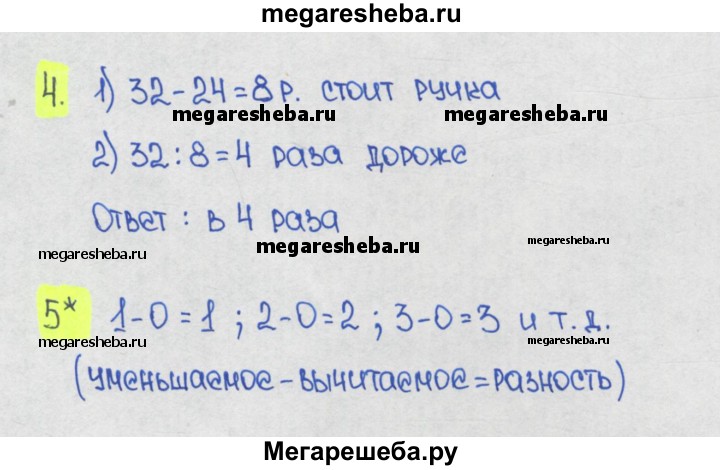 megaresheba.ru
4. 1) 32 - 24 = 8 р. стоит ручка
megaresheba.ru megaresheba.ru
2) 32 : 8 = 4 раза дороже
Ответ : в 4 раза
megaresheba.ru megaresheba.ru megaresheba.ru
5* 1 - 0 = 1 ; 2 - 0 = 2 ; 3 - 0 = 3 и т. д.
megaresheba.ru megaresheba.ru megaresheba.ru
(уменьшаемое - вычитаемое = разность)
Мегарешеба.ру